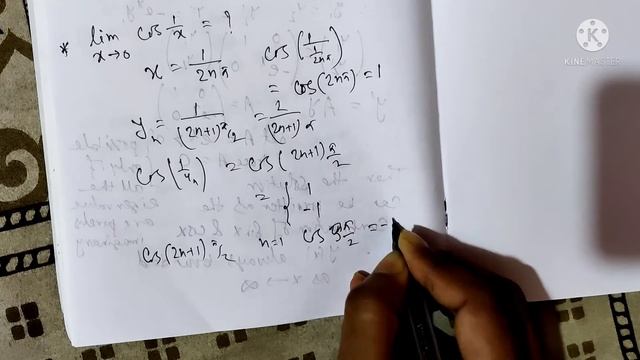 * lim x→0 cos 1/x = ?
x = 1/2nπ cos(1/(1/2nπ))
= cos(2nπ) = 1
yₙ = 1/((2n+1)π/2) = 2/((2n+1)π)
cos(1/yₙ) = cos(2n+1)π/2
= { 1
-1
cos(2n+1)π/2 n=1 cos 3π/2 = -
KINEMASTER